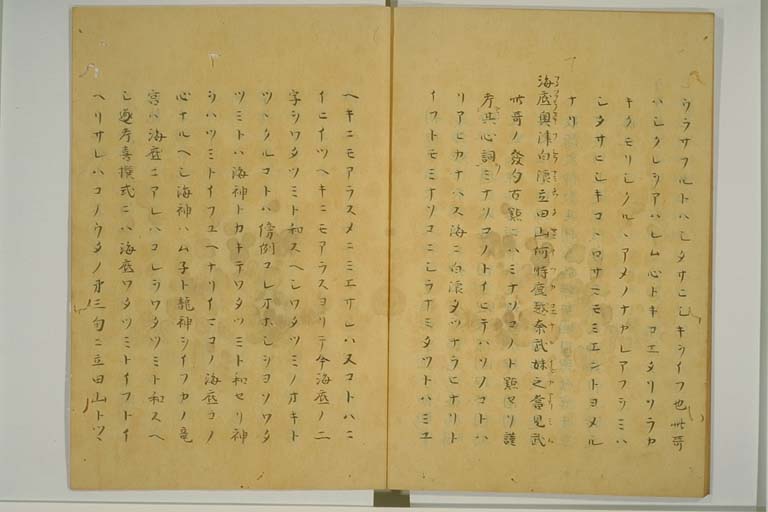 ウラサフルトハシタサヒシキヲイフ也此哥
ハシクレヲアハレム心トキコエタリソラカ
キクモリシクルヽアメノナカレアフヲミハ
シタサヒシキコヽロサニモミエシトヨメル
ナリ
海底奥津白浪立田山何時鹿越奈武妹之當見武
此哥ノ發句古點ニハミナソコノト點セリ謹
考其心詞ミナソコノトイヒテハソノコトハ
リアヒカナハス海ニ白浪タツナラヒナリト
イフトモミナソコニシラナミタツトハミエ
ヘキニモアラスメニミエサレハスコトハニ
イヒイツヘキニモアラスヨリテ今海底ノ二
字ヲワタツミト和スヘシワタツミノオキト
ツヽクルコトハ傍例コレオホシヨソワタ
ツミトハ海神トカキテワタツミト和セリ神
ヲハツミトイフユヘナリイマコノ海底ヨノ
心ナルヘシ海神ハムネト龍神ヲイフカノ竜
宮ハ海底ニアレハコレヲワタツミト和スヘ
シ考喜撰式ニハ海底ワタツミトイフトイ
ヘリサレハコノウタノ才三句ニ立田山トツヽ